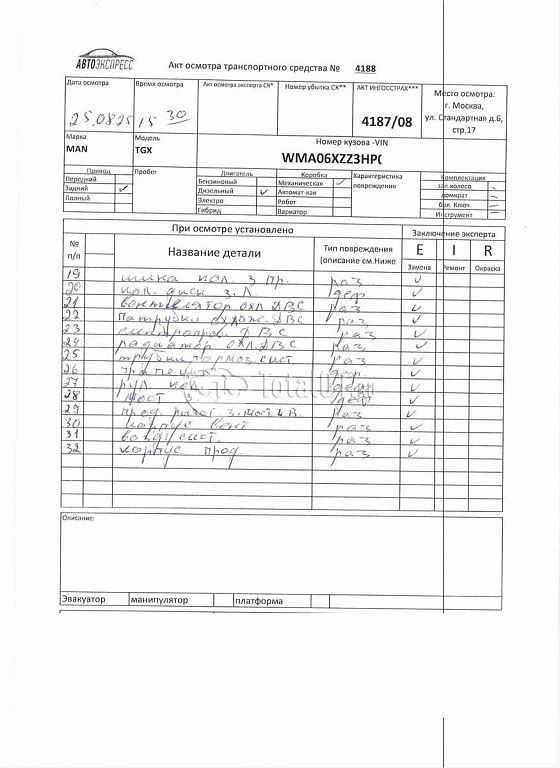 АВТОЭКСПРЕСС
Акт осмотра транспортного средства № 4188
Дата осмотра Время осмотра Акт осмотра эксперта СК* Номер убытка СК** АКТ ИНГОССТРАХ***
25.08.25 15 30 4187/08
Место осмотра:
г. Москва,
ул. Стандартная д.6,
стр.17
Марка Модель Номер кузова -VIN
MAN TGX WMA06XZZ3HP
Привод Пробег Двигатель Коробка Характеристика повреждения Комплектация
Передний Бензиновый Механическая ✓ зап.колесо –
Задний ✓ Дизельный ✓ Автомат-кая домкрат –
Полный Электро Робот бал. Ключ –
Гибрид Вариатор Инструмент –
При осмотре установлено Заключение эксперта
№ п/п Название детали Тип повреждения (описание см.Ниже E I R
Замена Ремонт Окраска
19 шина кол. з пр. раз ✓
20 кол. диск з. Л деф ✓
21 вентилятор охл ДВС раз ✓
22 Патрубки охлажд. ДВС раз ✓
23 електропров. ДВС раз ✓
24 радиатор охл. ДВС раз. ✓
25 трубки тормоз. сист. раз ✓
26 трапеция деф. ✓
27 рул. кол. деф ✓
28 мост з. деф ✓
29 прод. рычаг з. мост. Л В. раз ✓
30 корпус вент раз ✓
31 возд. сист. раз ✓
32 корпус прод. раз ✓
Total
Описание:
Эвакуатор манипулятор платформа